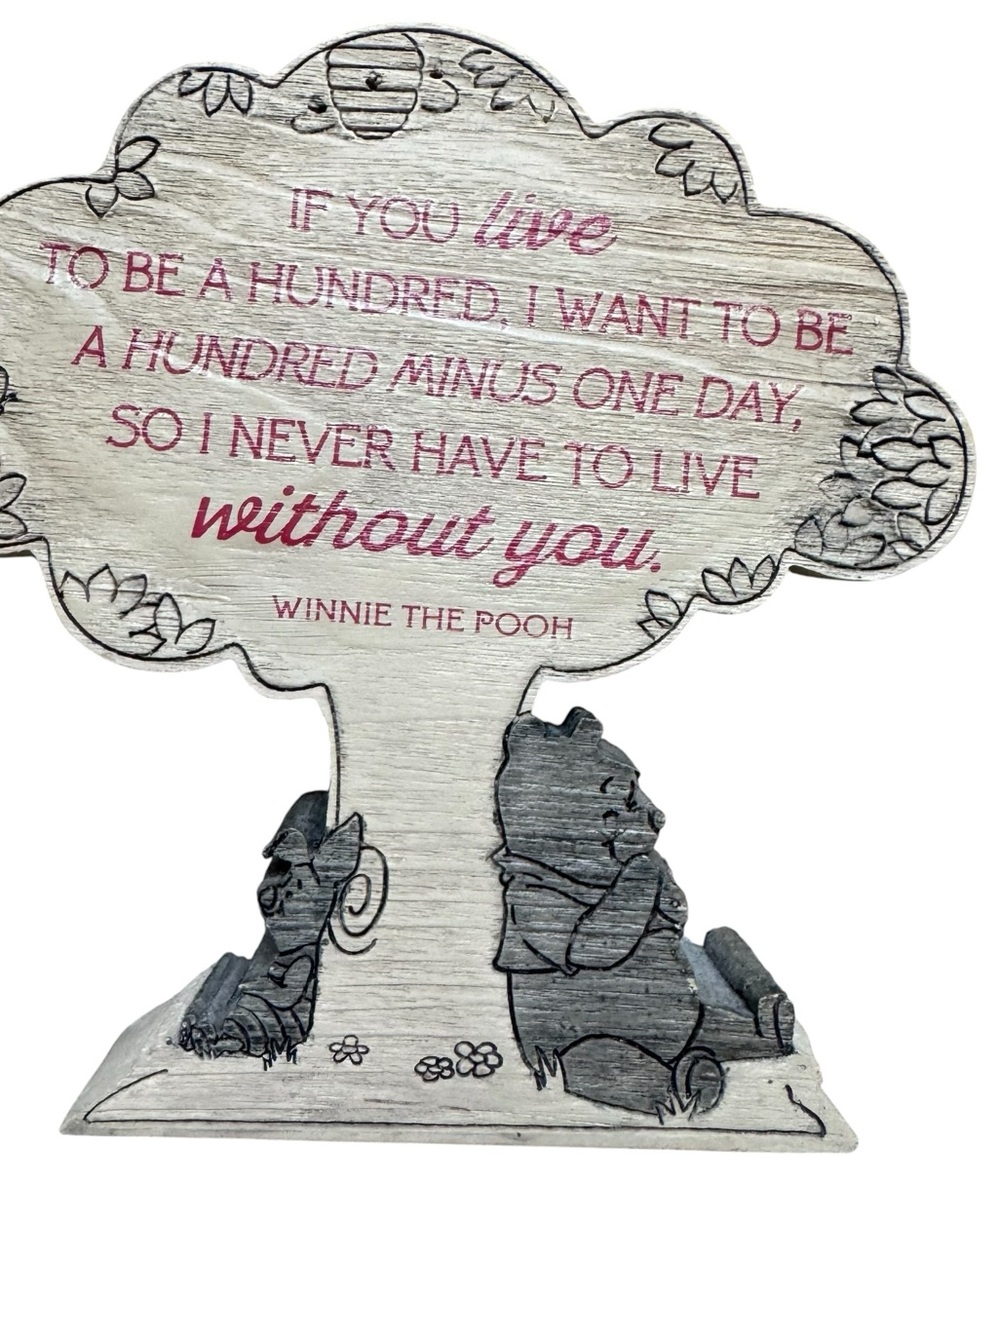 IF YOU live
TO BE A HUNDRED, I WANT TO BE
A HUNDRED MINUS ONE DAY,
SO I NEVER HAVE TO LIVE
without you.
WINNIE THE POOH